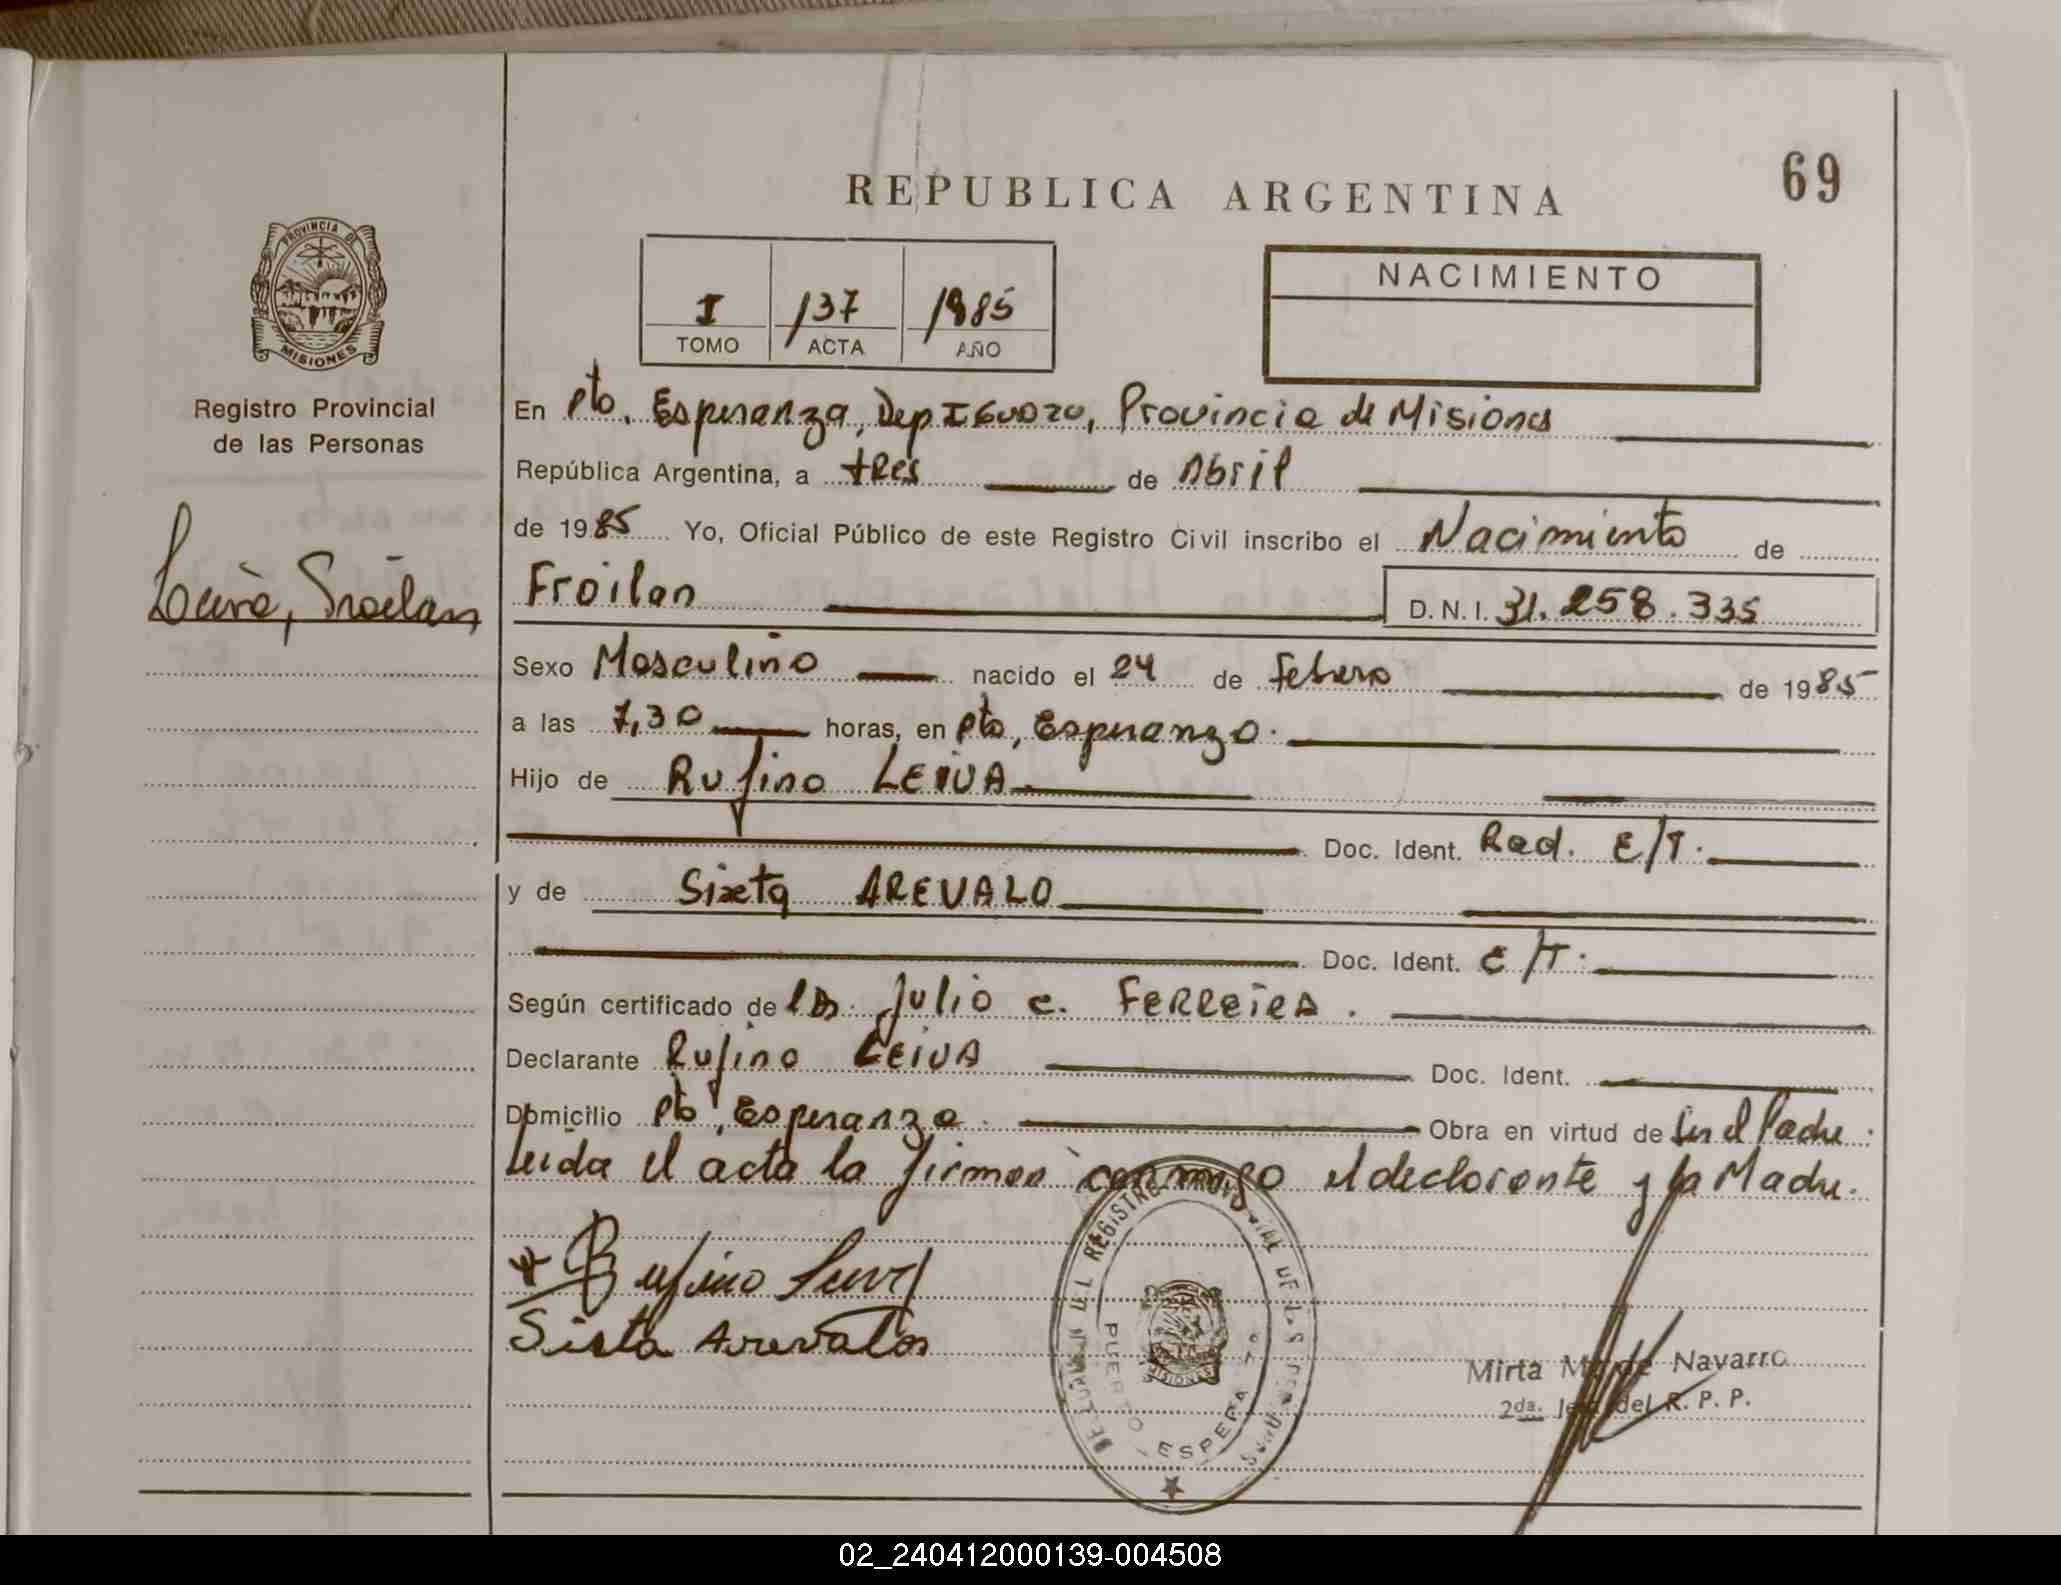 REPUBLICA ARGENTINA
69
PROVINCIA DE
MISIONES
Registro Provincial
de las Personas
Leiva, Froilan
I 137 1985
TOMO ACTA AÑO
NACIMIENTO
En Pto. Esperanza, Dep Iguazu, Provincia de Misiones
República Argentina, a tres de Abril
de 1985 Yo, Oficial Público de este Registro Civil inscribo el Nacimiento de
Froilan D.N.I. 31.258.335
Sexo Masculino nacido el 24 de febrero de 1985
a las 7,30 horas, en Pto, Esperanza.
Hijo de Rufino LEIVA
Doc. Ident. Rad. E/T.
y de Sixta AREVALO
Doc. Ident. E/T.
Según certificado de Julio C. FERREIRA.
Declarante Rufino LEIVA Doc. Ident.
Domicilio Pto, Esperanza. Obra en virtud de Ser el Padre.
Leida el acta la firman conmigo el declarante y la Madre.
Rufino Leiva
Sista Arevalos
REGISTRO PROVINCIAL DE LAS PERSONAS
PUERTO ESPERANZA
MISIONES
Mirta M. de Navarro
2da. Jefa del R. P. P.
02_240412000139-004508